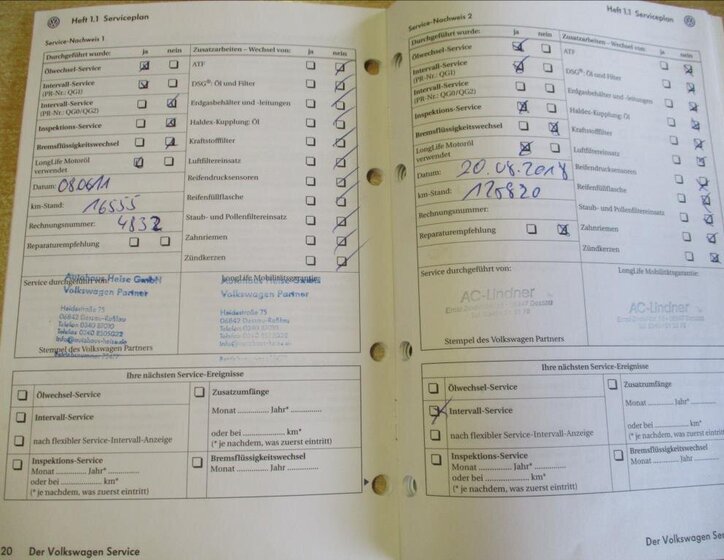 Heft 1.1 Serviceplan
Service-Nachweis 1
Durchgeführt wurde: ja nein
Zusatzarbeiten – Wechsel von: ja nein
Ölwechsel-Service
ATF
Intervall-Service
(PR-Nr.: QG1)
DSG®: Öl und Filter
Intervall-Service
(PR-Nr.: QG0/QG2)
Erdgasbehälter und -leitungen
Inspektions-Service
Haldex-Kupplung: Öl
Bremsflüssigkeitswechsel
Kraftstofffilter
LongLife Motoröl
verwendet
Luftfiltereinsatz
Datum: 080611
Reifendrucksensoren
km-Stand: 16555
Reifenfüllflasche
Rechnungsnummer: 4832
Staub- und Pollenfiltereinsatz
Reparaturempfehlung
Zahnriemen
Zündkerzen
Service durchgeführt von:
LongLife Mobilitätsgarantie:
Autohaus Heise GmbH
Volkswagen Partner
Heidestraße 75
06842 Dessau-Roßlau
Volkswagen Partner
Heidestraße 75
06842 Dessau-Roßlau
Stempel des Volkswagen Partners
Ihre nächsten Service-Ereignisse
Ölwechsel-Service
Zusatzumfänge
Monat .............. Jahr* ..............
Intervall-Service
oder bei .............. km*
nach flexibler Service-Intervall-Anzeige
(* je nachdem, was zuerst eintritt)
Inspektions-Service
Monat .............. Jahr* ..............
oder bei .............. km*
(* je nachdem, was zuerst eintritt)
Bremsflüssigkeitswechsel
Monat .............. Jahr* ..............
oder bei .............. km*
(* je nachdem, was zuerst eintritt)
20 Der Volkswagen Service
Heft 1.1 Serviceplan
Service-Nachweis 2
Durchgeführt wurde: ja nein
Zusatzarbeiten – Wechsel von: ja nein
Ölwechsel-Service
ATF
Intervall-Service
(PR-Nr.: QG1)
DSG®: Öl und Filter
Intervall-Service
(PR-Nr.: QG0/QG2)
Erdgasbehälter und -leitungen
Inspektions-Service
Haldex-Kupplung: Öl
Bremsflüssigkeitswechsel
Kraftstofffilter
LongLife Motoröl
verwendet
Luftfiltereinsatz
Datum: 20.08.2018
Reifendrucksensoren
km-Stand: 120820
Reifenfüllflasche
Rechnungsnummer:
Staub- und Pollenfiltereinsatz
Reparaturempfehlung
Zahnriemen
Zündkerzen
Service durchgeführt von:
LongLife Mobilitätsgarantie:
AC-Lindner
AC-Lindner
Stempel des Volkswagen Partners
Ihre nächsten Service-Ereignisse
Ölwechsel-Service
Zusatzumfänge
Monat .............. Jahr* ..............
Intervall-Service
oder bei .............. km*
nach flexibler Service-Intervall-Anzeige
(* je nachdem, was zuerst eintritt)
Inspektions-Service
Monat .............. Jahr* ..............
oder bei .............. km*
(* je nachdem, was zuerst eintritt)
Bremsflüssigkeitswechsel
Monat .............. Jahr* ..............
oder bei .............. km*
(* je nachdem, was zuerst eintritt)
Der Volkswagen Ser